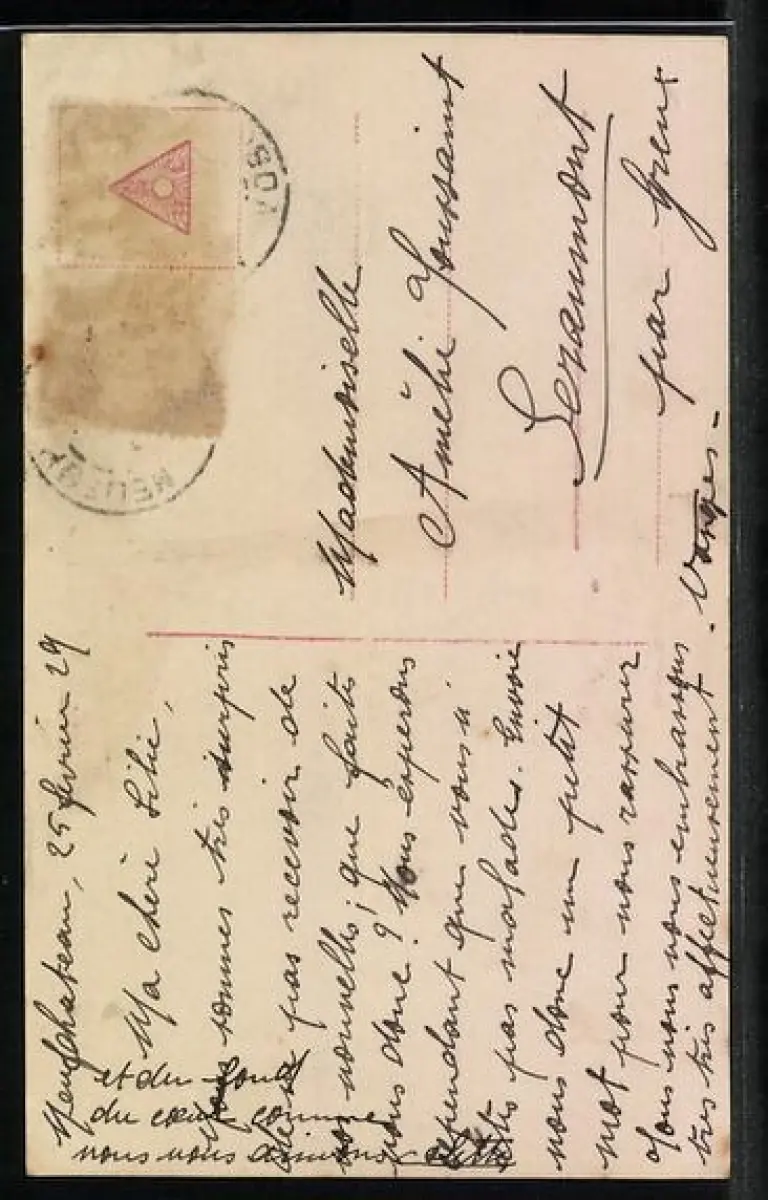 Neufchateau, 25 février 29
Ma chère Lilie,
Nous sommes très surpris
de ne pas recevoir de
vos nouvelles ; que faites
vous donc ? Nous espérons
cependant que vous n'
êtes pas malades. Envoie
nous donc un petit
mot pour nous rassurer
Tous nous vous embrassons
très très affectueusement.
et du fond
du cœur comme
nous vous aimons
Mademoiselle
Amélie Toussaint
Seraumont
par Greux
Vosges -
NEUFCH
VOSG